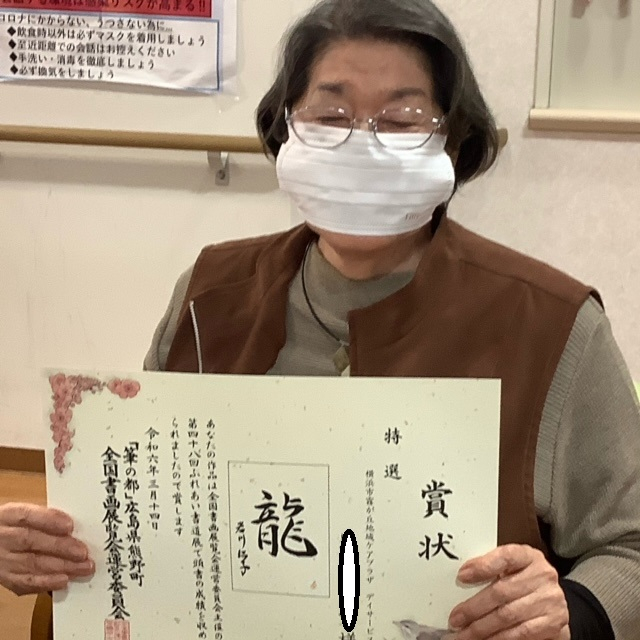 コロナにかからない、うつさない為に
◆飲食時以外は必ずマスクを着用しましょう
◆至近距離での会話はお控えください
◆手洗い・消毒を徹底しましょう
◆必ず換気をしましょう
賞状
特選
横浜市霧が丘地域ケアプラザ デイサービス
様
龍
あなたの作品は全国書画展覧会運営委員会主催の
第四十八回ふれあい書道展で頭書の成績を収め
られましたので賞します
令和六年三月十四日
「筆の都」広島県熊野町
全国書画展覧会運営委員会